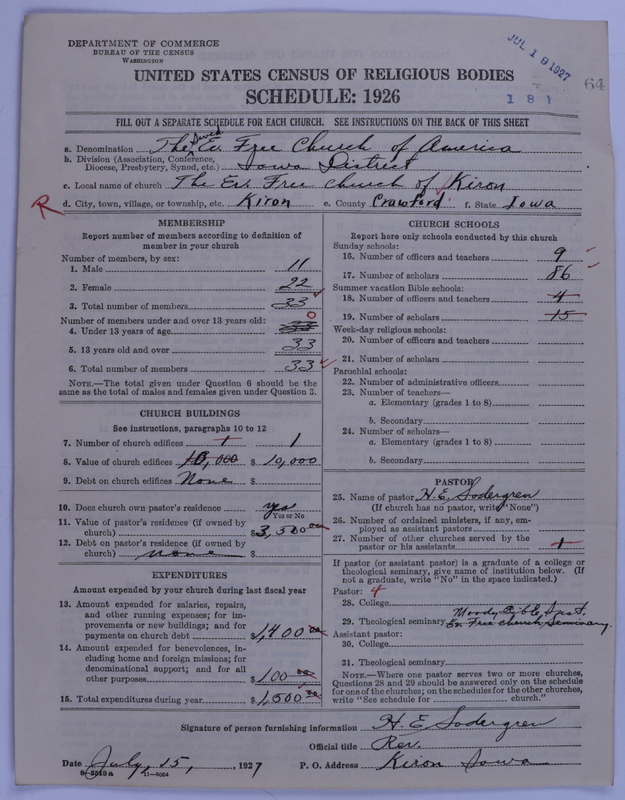 DEPARTMENT OF COMMERCE
BUREAU OF THE CENSUS
WASHINGTON
JUL 18 1927
64
UNITED STATES CENSUS OF RELIGIOUS BODIES
SCHEDULE: 1926
181
FILL OUT A SEPARATE SCHEDULE FOR EACH CHURCH. SEE INSTRUCTIONS ON THE BACK OF THIS SHEET
a. Denomination The Swed Ev. Free Church of America
b. Division (Association, Conference, Diocese, Presbytery, Synod, etc.) Iowa District
c. Local name of church The Ev. Free church of Kiron
R d. City, town, village, or township, etc. Kiron e. County Crawford f. State Iowa
MEMBERSHIP
Report number of members according to definition of
member in your church
Number of members, by sex:
1. Male 11
2. Female 22
3. Total number of members 33
Number of members under and over 13 years old: 0
4. Under 13 years of age 33
5. 13 years old and over 33
6. Total number of members 33
NOTE.—The total given under Question 6 should be the
same as the total of males and females given under Question 3.
CHURCH BUILDINGS
See instructions, paragraphs 10 to 12
7. Number of church edifices 1 1
8. Value of church edifices 10,000 $ 10,000
9. Debt on church edifices None $
10. Does church own pastor's residence yes
Yes or No
11. Value of pastor's residence (if owned by
church) $3,500 00
12. Debt on pastor's residence (if owned by
church) none $
EXPENDITURES
Amount expended by your church during last fiscal year
13. Amount expended for salaries, repairs,
and other running expenses; for im-
provements or new buildings; and for
payments on church debt $1,400 00
14. Amount expended for benevolences, in-
cluding home and foreign missions; for
denominational support; and for all
other purposes $100 00
15. Total expenditures during year $1,500 00
CHURCH SCHOOLS
Report here only schools conducted by this church
Sunday schools:
16. Number of officers and teachers 9
17. Number of scholars 86
Summer vacation Bible schools:
18. Number of officers and teachers 4
19. Number of scholars 15
Week-day religious schools:
20. Number of officers and teachers
21. Number of scholars
Parochial schools:
22. Number of administrative officers
23. Number of teachers—
a. Elementary (grades 1 to 8)
b. Secondary
24. Number of scholars—
a. Elementary (grades 1 to 8)
b. Secondary
PASTOR
25. Name of pastor H. E. Sodergren
(If church has no pastor, write "None")
26. Number of ordained ministers, if any, em-
ployed as assistant pastors
27. Number of other churches served by the
pastor or his assistants 1
If pastor (or assistant pastor) is a graduate of a college or
theological seminary, give name of institution below. (If
not a graduate, write "No" in the space indicated.)
Pastor: 4
28. College
Moody Bible Inst.
29. Theological seminary Ev. Free Church Seminary.
Assistant pastor:
30. College
31. Theological seminary
NOTE.—Where one pastor serves two or more churches,
Questions 28 and 29 should be answered only on the schedule
for one of the churches; on the schedules for the other churches,
write "See schedule for church."
Signature of person furnishing information H. E. Sodergren
Official title Rev.
Date July, 15, , 1927 P. O. Address Kiron Iowa
8—5318a 11—9084